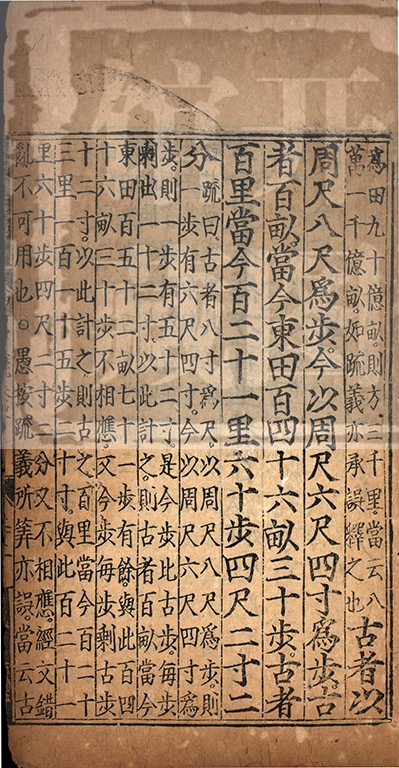 爲田九十億畝則方三千里當云八
萬一千億畝如疏義亦承誤釋之也
古者以
周尺八尺爲步今以周尺六尺四寸爲步古
者百畝當今東田百四十六畝三十步古者
百里當今百二十一里六十步四尺二寸二
分
疏曰古者八寸爲尺以周尺八尺爲步則
一步有六尺四寸今以周尺六尺四寸爲
步則一步有五十二寸是今步比古步每步
剩出一十二寸以此計之則古者百畝當今
東田百五十二畝七十一步有餘與此百四
十六畝三十步不相應又今步每步剩古步
十二寸以此計之則古之百里當今百二十
三里一百一十五步二十寸與此百二十一
里六十步四尺二寸二分又不相應經文錯
亂不可用也愚按疏義所筭亦誤當云古